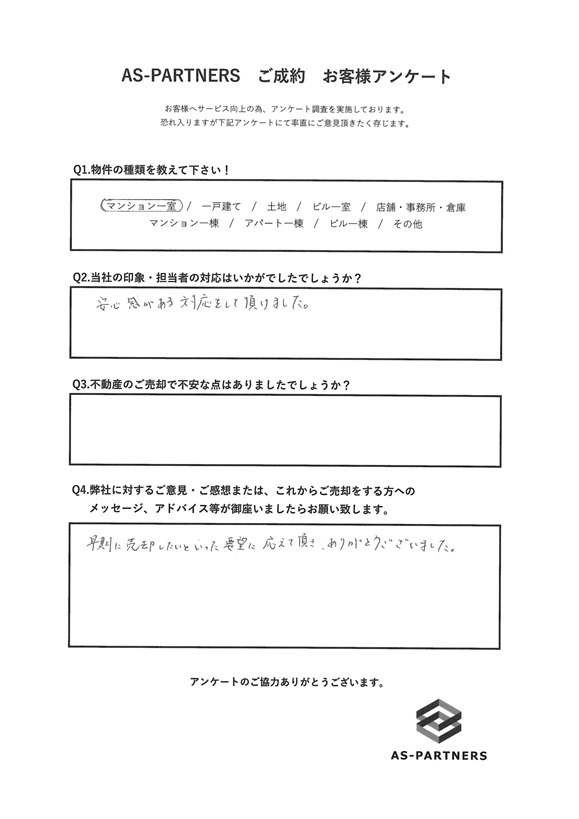 AS-PARTNERS ご成約 お客様アンケート
お客様へサービス向上の為、アンケート調査を実施しております。
恐れ入りますが下記アンケートにて率直にご意見頂きたく存じます。
Q1.物件の種類を教えて下さい！
マンション一室 / 一戸建て / 土地 / ビル一室 / 店舗・事務所・倉庫
マンション一棟 / アパート一棟 / ビル一棟 / その他
Q2.当社の印象・担当者の対応はいかがでしたでしょうか？
安心感がある対応をして頂けました。
Q3.不動産のご売却で不安な点はありましたでしょうか？
Q4.弊社に対するご意見・ご感想または、これからご売却をする方への
メッセージ、アドバイス等が御座いましたらお願い致します。
早期に売却したいといった要望に応えて頂き、ありがとうございました。
アンケートのご協力ありがとうございます。
AS-PARTNERS